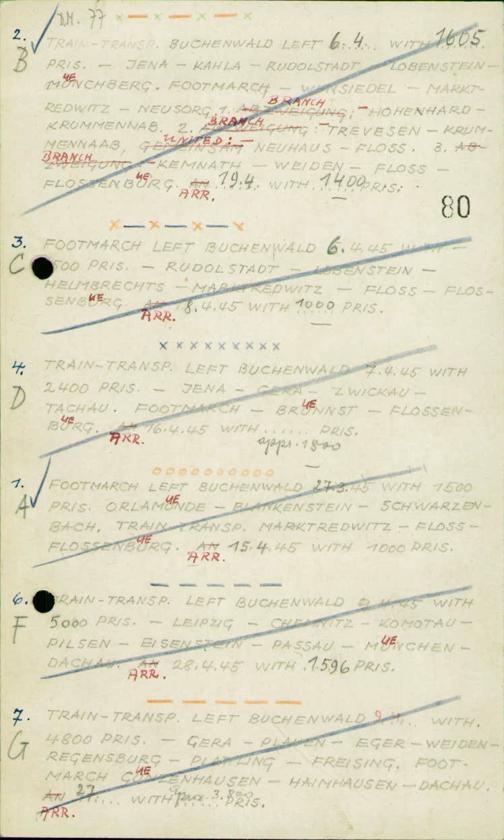 D.M. 77
2. TRAIN-TRANSP. BUCHENWALD LEFT 6.4. WITH 1605
B PRIS. — JENA — KAHLA — RUDOLSTADT — LOBENSTEIN —
UE
MÜNCHBERG. FOOTMARCH — WUNSIEDEL — MARKT-
BRANCH
REDWITZ — NEUSORG 1. ABZWEIGUNG: — HOHENHARD —
BRANCH
KRUMMENNAB. 2. ABZWEIGUNG: — TREVESEN — KRUM-
UNITED: —
MENNAAB, GEMEINSAM NEUHAUS — FLOSS. 3. AB-
BRANCH
ZWEIGUNG — KEMNATH — WEIDEN — FLOSS —
UE
FLOSSENBURG. AN 19.4. WITH 1400 PRIS.
ARR.
80
3. FOOTMARCH LEFT BUCHENWALD 6.4.45 WITH
C 500 PRIS. — RUDOLSTADT — LOBENSTEIN —
HELMBRECHTS — MARKTREDWITZ — FLOSS — FLOS-
UE
SENBURG. AN 8.4.45 WITH 1000 PRIS.
ARR.
4. TRAIN-TRANSP. LEFT BUCHENWALD 7.4.45 WITH
D 2400 PRIS. — JENA — GERA — ZWICKAU —
UE
TACHAU. FOOTMARCH — BRÜNNST — FLOSSEN-
UE
BURG. AN 16.4.45 WITH ...... PRIS.
ARR. appr. 1800
1. FOOTMARCH LEFT BUCHENWALD 27.3.45 WITH 1500
UE
A PRIS. ORLAMUNDE — BLANKENSTEIN — SCHWARZEN-
BACH, TRAIN-TRANSP. MARKTREDWITZ — FLOSS —
UE
FLOSSENBURG. AN 15.4.45 WITH 1000 PRIS.
ARR.
6. TRAIN-TRANSP. LEFT BUCHENWALD .4.45 WITH
F 5000 PRIS. — LEIPZIG — CHEMNITZ — KOMOTAU —
UE
PILSEN — EISENSTEIN — PASSAU — MUNCHEN —
DACHAU. AN 28.4.45 WITH .1596 PRIS.
ARR.
7. TRAIN-TRANSP. LEFT BUCHENWALD 9. WITH.
G 4800 PRIS. — GERA — PLAUEN — EGER — WEIDEN-
REGENSBURG — PLATTLING — FREISING, FOOT-
UE
MARCH GUNZENHAUSEN — HAIMHAUSEN — DACHAU.
AN 27 .... WITH 3.800 PRIS.
ARR.